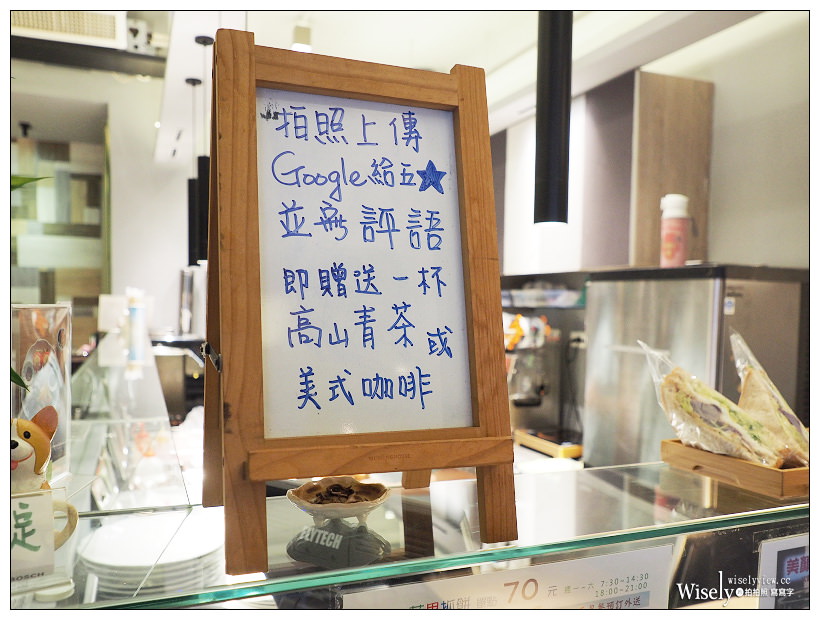 拍照上傳
Google給五★
並寫評語
即贈送一杯
高山青茶或
美式咖啡
ELYTECH
BOSCH
70元 週一~六 7:30~14:30
18:00~21:00
Wisely
wiselyview.cc
拍拍照 寫寫字